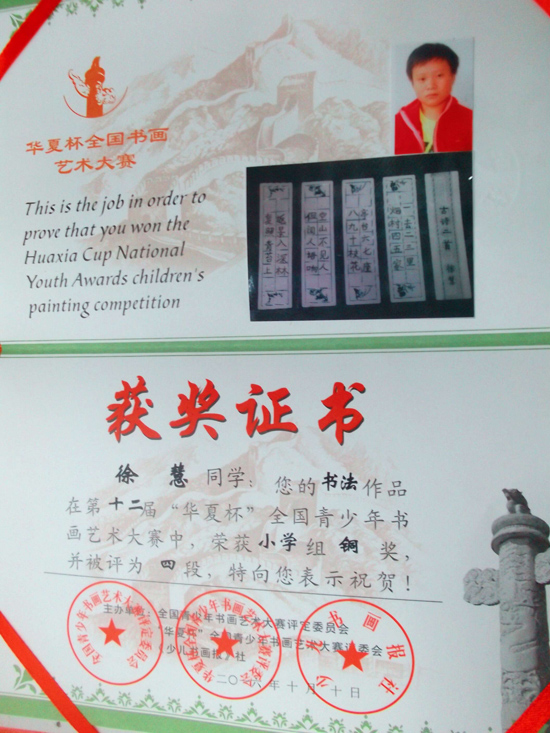 华夏杯全国书画
艺术大赛
This is the job in order to
prove that you won the
Huaxia Cup National
Youth Awards children's
painting competition
空山不见人
八九十枝花
获奖证书
徐 慧 同学：您的书法作品
在第十二届“华夏杯”全国青少年书
画艺术大赛中，荣获小学组铜奖，
并被评为 四段，特向您表示祝贺！
主办单位：全国青少年书画艺术大赛评定委员会
“华夏杯”全国青少年书画艺术大赛评委会
《少儿书画报》社
十月十日